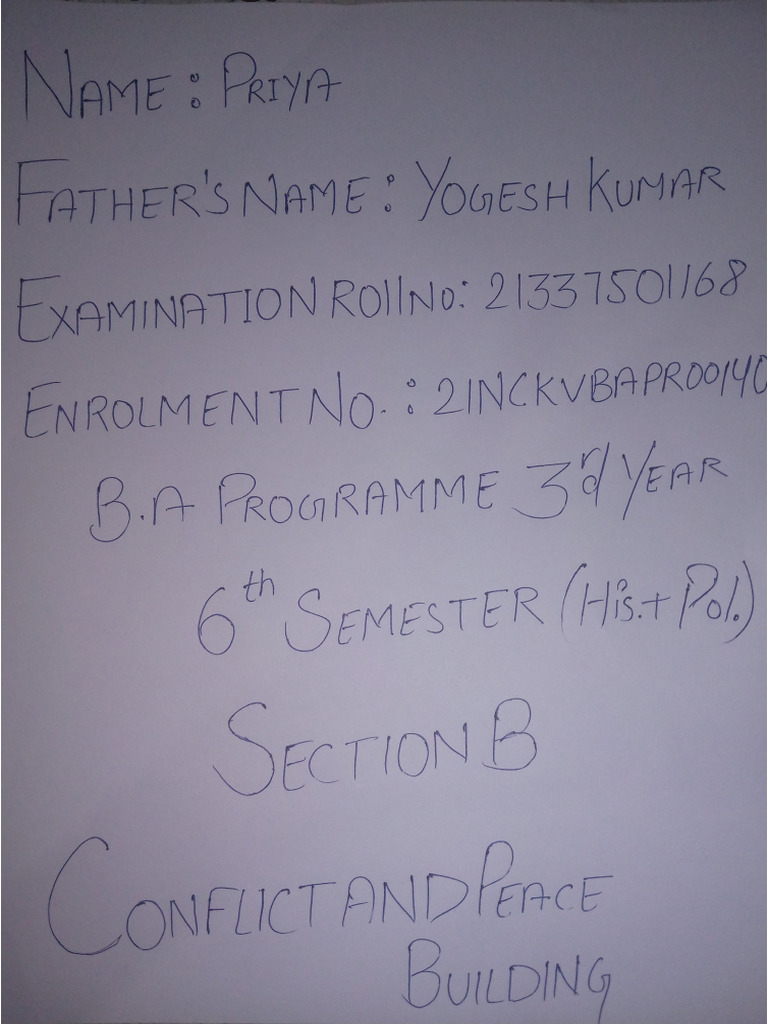 NAME: PRIYA
FATHER'S NAME: YOGESH KUMAR
EXAMINATION ROll NO: 21337501168
ENROLMENT NO.: 21NCKVBAPR00140
B.A PROGRAMME 3rd YEAR
6th SEMESTER (His.+ Pol.)
SECTION B
CONFLICT AND PEACE
BUILDING